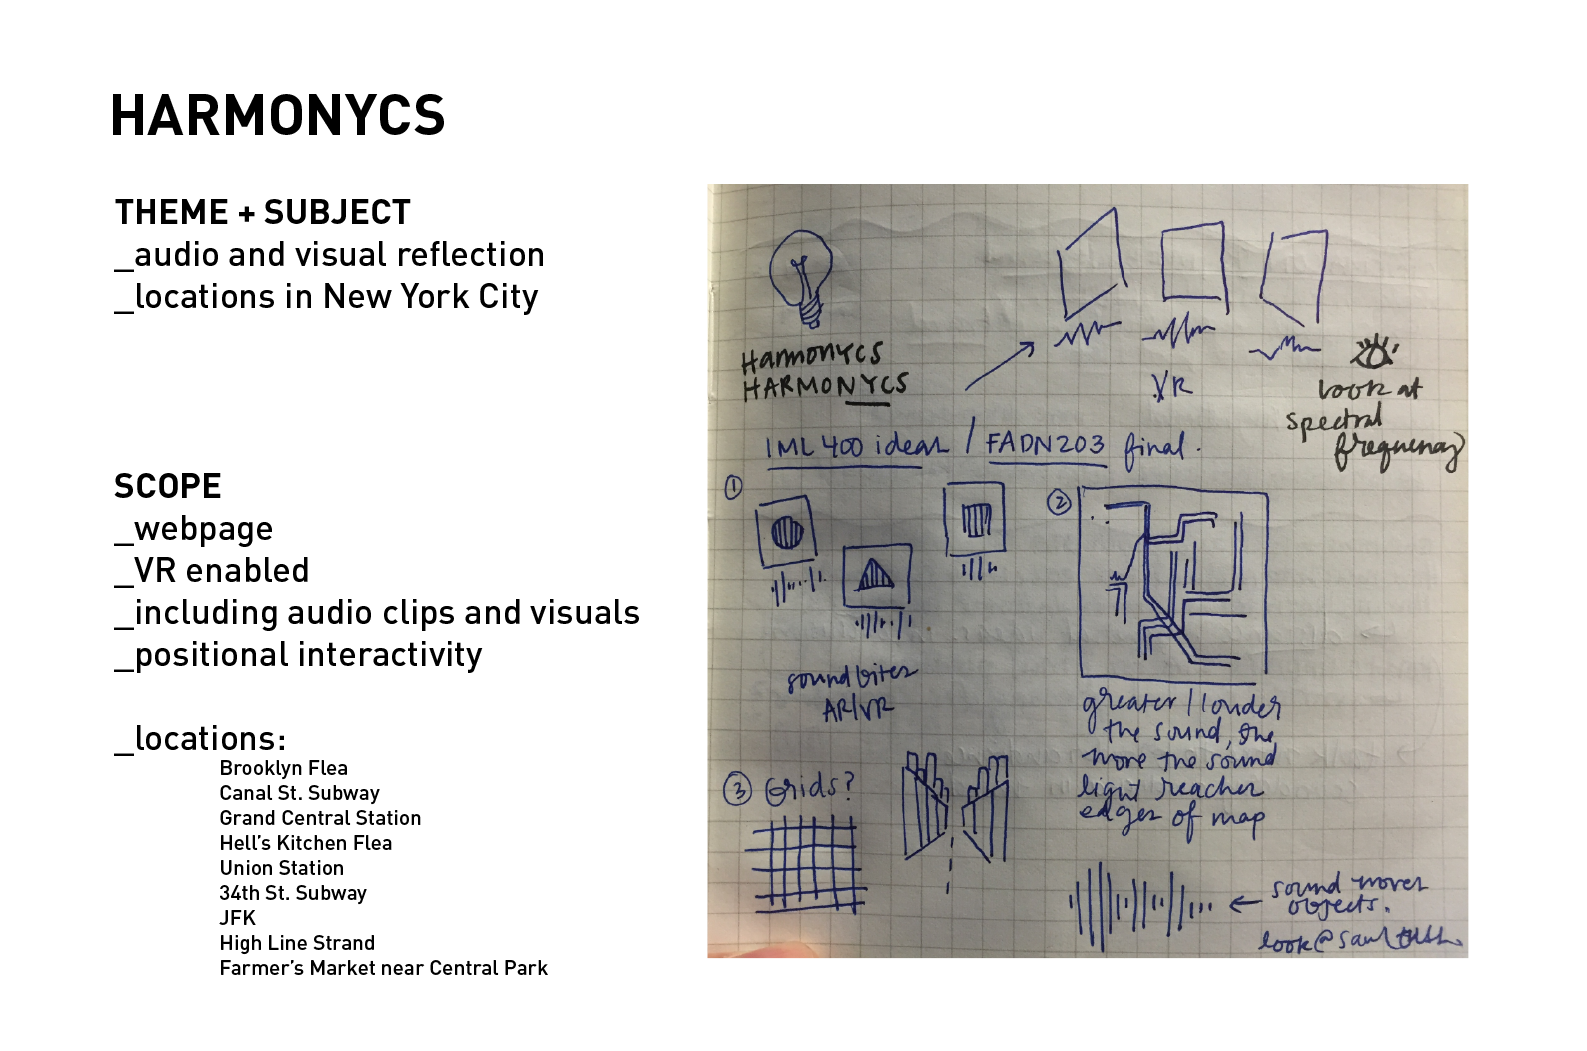 HARMONYCS
THEME + SUBJECT
_audio and visual reflection
_locations in New York City
SCOPE
_webpage
_VR enabled
_including audio clips and visuals
_positional interactivity
_locations:
Brooklyn Flea
Canal St. Subway
Grand Central Station
Hell's Kitchen Flea
Union Station
34th St. Subway
JFK
High Line Strand
Farmer's Market near Central Park
HarmonYCS
HARMONYCS
VR
look at
spectral
frequency
IML 400 ideas / FADN203 final.
①
sound bites
AR/VR
②
greater / louder
the sound, the
more the sound
light reaches
edges of map
③ Grids?
← sound moves
objects.
look @ saul